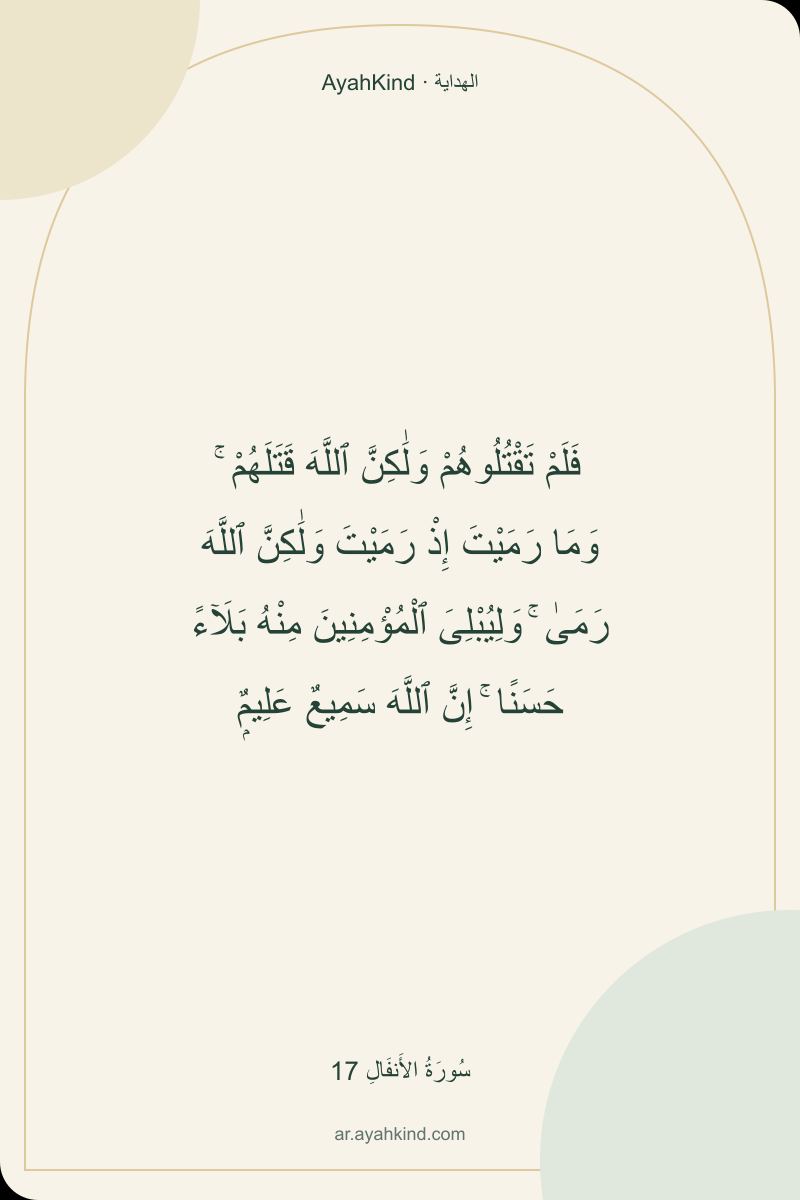 AyahKind · الهداية
فَلَمْ تَقْتُلُوهُمْ وَلَٰكِنَّ ٱللَّهَ قَتَلَهُمْ ۚ
وَمَا رَمَيْتَ إِذْ رَمَيْتَ وَلَٰكِنَّ ٱللَّهَ
رَمَىٰ ۚ وَلِيُبْلِىَ ٱلْمُؤْمِنِينَ مِنْهُ بَلَآءً
حَسَنًا ۚ إِنَّ ٱللَّهَ سَمِيعٌ عَلِيمٌۭ
سُورَةُ الأَنفَالِ 17
ar.ayahkind.com